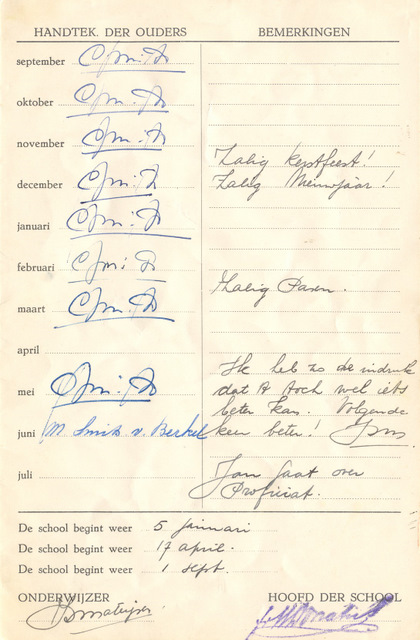 HANDTEK. DER OUDERS BEMERKINGEN
september
oktober
november
Zalig kerstfeest!
december
Zalig Nieuwjaar!
januari
februari
Zalig Pasen.
maart
april
Ik heb zo de indruk
mei
dat er toch wel iets
beter kan. Volgende
juni M Smits v. Berkel keer beter!
juli
Jan gaat over
Proficiat.
De school begint weer 5 januari
De school begint weer 17 april.
De school begint weer 1 sept.
ONDERWIJZER HOOFD DER SCHOOL